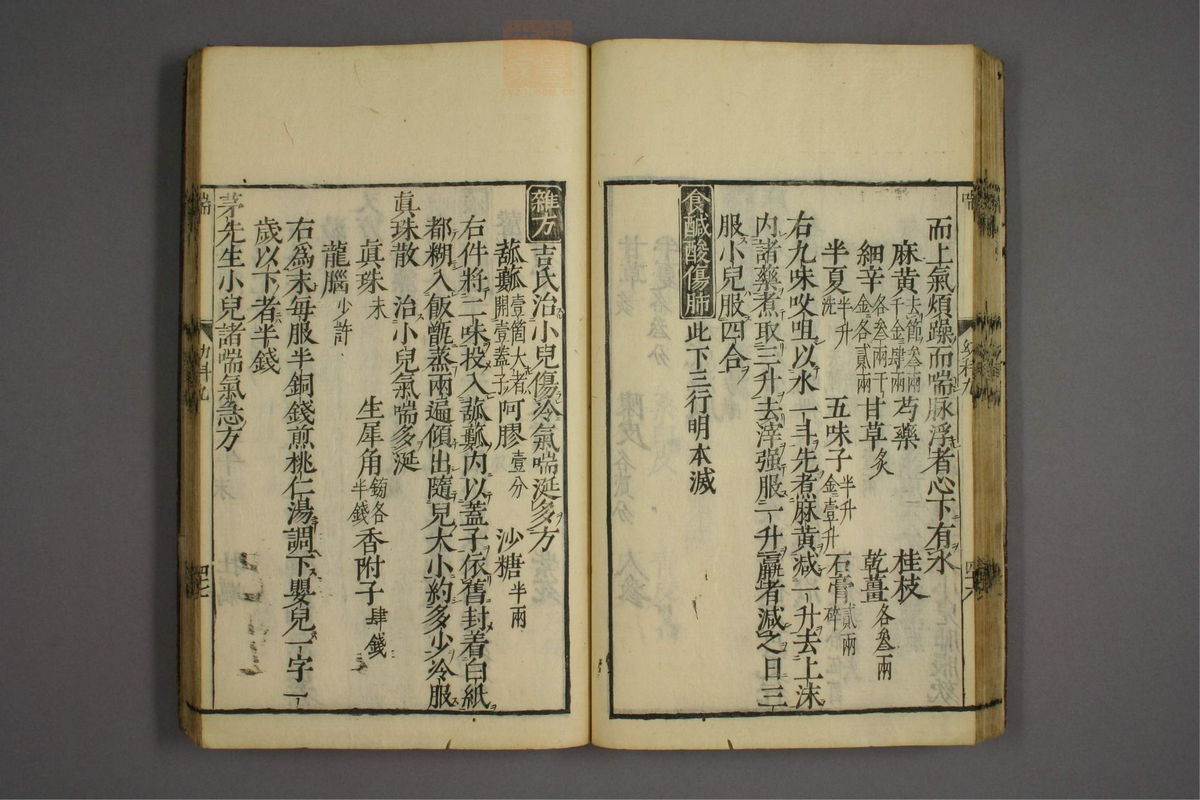 而上氣煩躁而喘脉浮者心下有水
麻黄去節叁兩千金肆兩 芍藥 桂枝
細辛各叁兩千金各貳兩 甘草炙 乾薑各叁兩
半夏半升洗 五味子半升金壹升 石膏貳兩碎
右九味㕮咀以水一斗先煮麻黄減一升去上沫
内諸藥煮取三升去滓强服一升羸者減之日三
服小兒服四合
食醎酸傷肺 此下三行明本滅
雜方 吉氏治小兒傷冷氣喘涎多方
蓏蓏壹箇大者開壹蓋子 阿膠壹分 沙糖半兩
右件將二味投入內以蓋子依舊封着白紙
都糊入飯甑蒸兩遍傾出隨兒大小約多少冷服
真珠散 治小兒氣喘多涎
真珠末 生犀角鎊各半錢 香附子肆錢
龍腦少許
右爲末每服半銅錢煎桃仁湯調下嬰兒一字一
歲以下者半錢
茅先生小兒諸喘氣急方
喘 幼科九